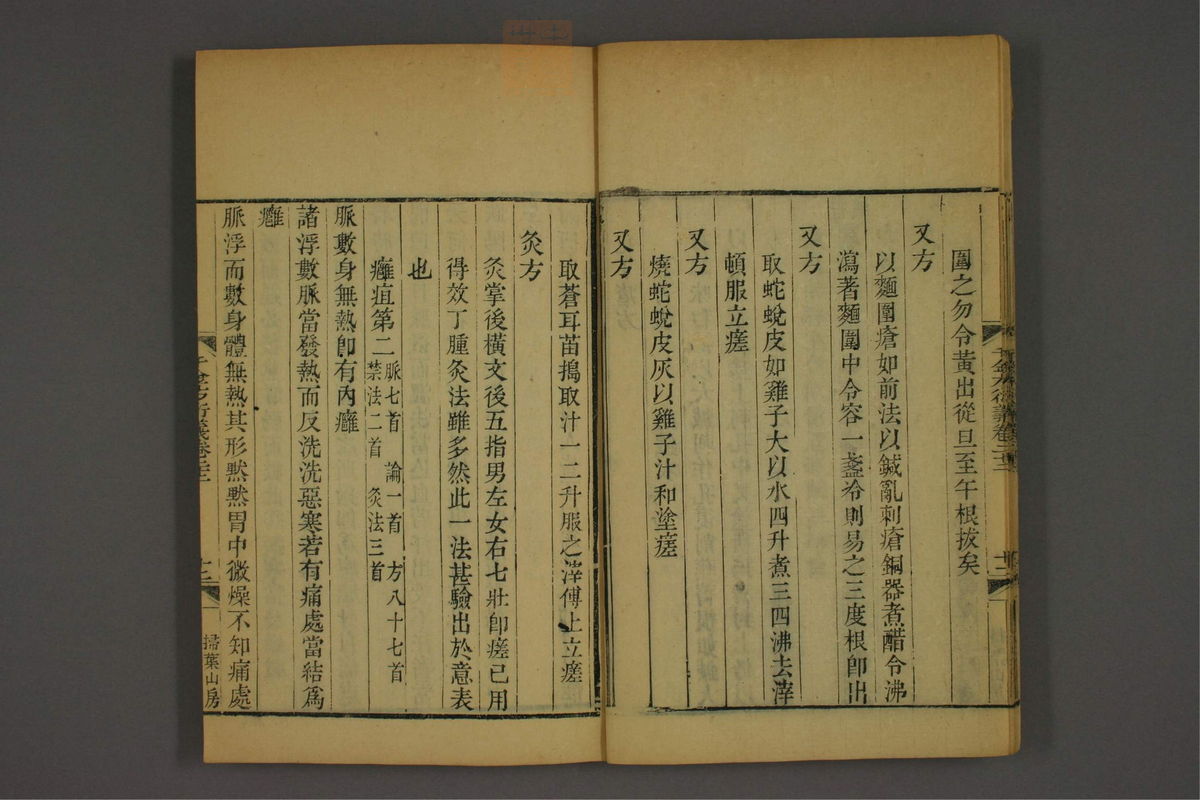 圍之勿令黃出從旦至午根拔矣
又方
以麵圍瘡如前法以鍼亂刺瘡銅器煮醋令沸
瀉著麵圍中令容一盞冷則易之三度根卽出
又方
取蛇蛻皮如雞子大以水四升煮三四沸去滓
頓服立瘥
又方
燒蛇蛻皮灰以雞子汁和塗瘥
又方
取蒼耳苗搗取汁一二升服之滓傅上立瘥
灸方
灸掌後橫文後五指男左女右七壯卽瘥已用
得效丁腫灸法雖多然此一法甚驗出於意表
也
癰疽第二 脈七首 論一首 方八十七首
禁法二首 灸法三首
脈數身無熱卽有內癰
諸浮數脈當發熱而反洗洗惡寒若有痛處當結爲
癰
脈浮而數身體無熱其形默默胃中微燥不知痛處
千金方衍義卷二十二
掃葉山房